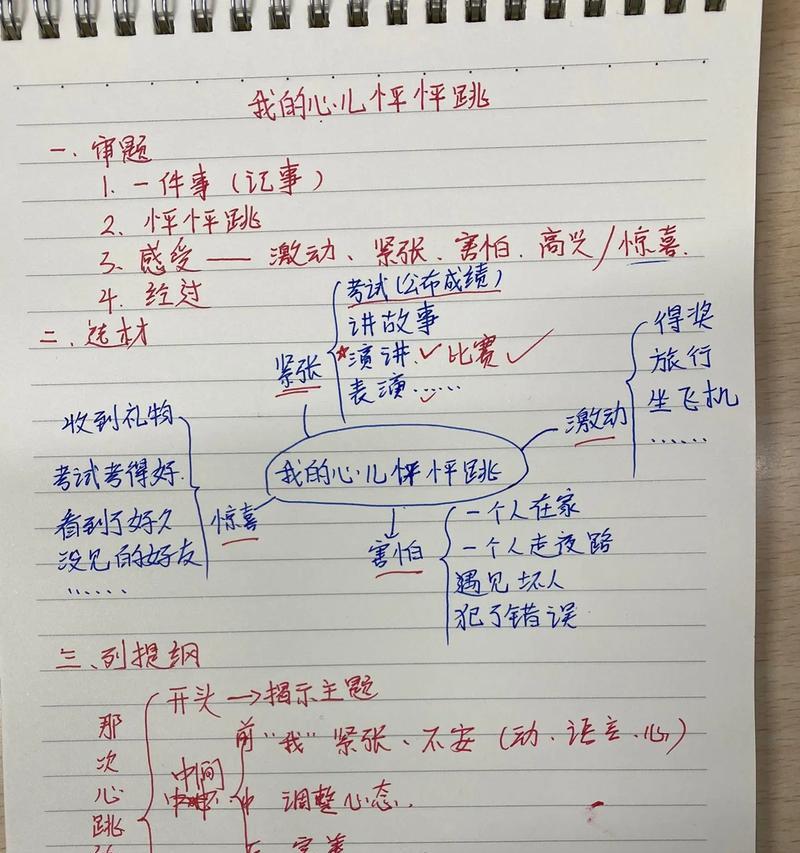 我的心儿怦怦跳
一、审题
1. 一件事（记事）
2. 怦怦跳
3、感受——激动、紧张、害怕、高兴/惊喜.
4. 经过
二、选材
紧张
考试（公布成绩）
讲故事
演讲 ✓ 比赛 ✓
表演……
激动
得奖
旅行
坐飞机
……
我的心儿怦怦跳
惊喜
收到礼物
考试考得好.
看到了好久
没见的好友
……
害怕
一个人在家
一个人走夜路
遇见坏人
犯了错误
三、列提纲
那次心跳
开头→揭示主题
中间
前“我”紧张、不安（动、语言、心）
中 调整心态.